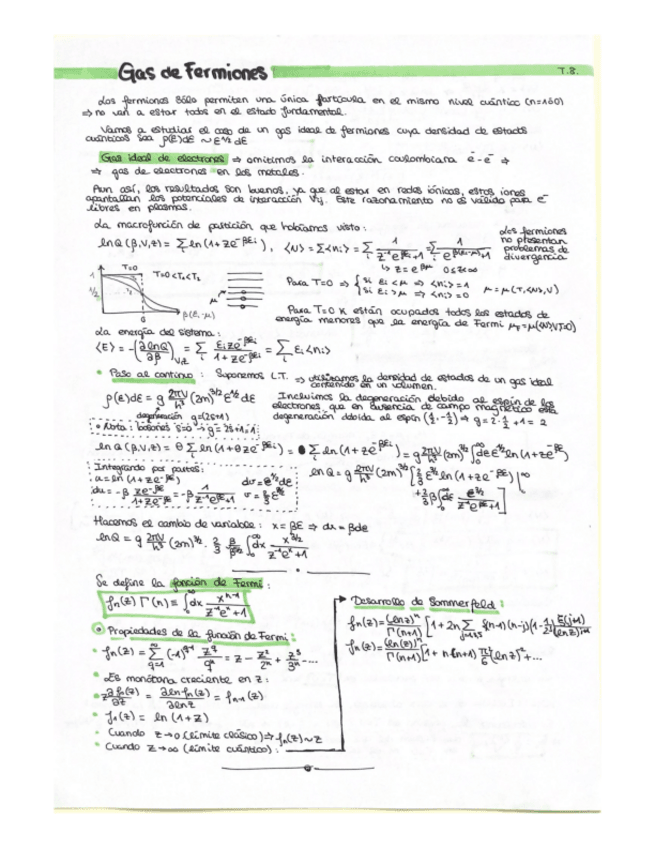 Gas de Fermiones
T.8.
Los fermiones sólo permiten una única partícula en el mismo nivel cuántico (n=1ó0)
⇒ no van a estar todos en el estado fundamental.
Vamos a estudiar el caso de un gas ideal de fermiones cuya densidad de estados
cuánticos sea ρ(E)dE ~ E^{1/2} dE
Gas ideal de electrones ⇒ omitimos la interacción coulombiana e⁻-e⁻ ⇒
⇒ gas de electrones en los metales.
Aun así, los resultados son buenos, ya que al estar en redes iónicas, estos iones
apantallan los potenciales de interacción Vij. Este razonamiento no es válido para e⁻
libres en plasmas.
La macrofunción de partición que habíamos visto:
ln Q(β,V,z) = Σ_i ln(1+ze^{-βEi}), <N> = Σ<ni> = Σ_i 1/(z⁻¹e^{βEi}+1) = Σ_i 1/(e^{β(Ei-μ)}+1)
↳ z = e^{βμ} 0≤z≤∞
Los fermiones
no presentan
problemas de
divergencia
T=0
T=0<T1<T2
1
1/2
0
β(E-μ)
μ
Para T=0 ⇒ { si Ei<μ ⇒ <ni>=1
si Ei>μ ⇒ <ni>=0
μ=μ(T,<N>,V)
Para T=0 K están ocupados todos los estados de
energía menores que la energía de Fermi μF=μ(<N>,V,T=0)
La energía del sistema:
<E> = -(∂lnQ/∂β)_{V,z} = Σ_i Eize^{-βEi}/(1+ze^{-βEi}) = Σ_i Ei<ni>
• Paso al continuo: Suponemos L.T. ⇒ utilizamos la densidad de estados de un gas ideal
contenido en un volumen.
ρ(E)dE = g 2πV/h³ (2m)^{3/2} E^{1/2} dE
degeneración g=(2s+1)
Incluimos la degeneración debido al espín de los
electrones que en ausencia de campo magnético está
degeneración ddoida al espín (½,-½) ⇒ g=2·½+1=2
• Nota: bosones s=0 → g=2s+1=1
ln Q(β,V,z) = θ Σ_i ln(1+θze^{-βEi}) = Σ_i ln(1+ze^{-βEi}) = g 2πV/h³ (2m)^{3/2} ∫₀^∞ dE E^{1/2} ln(1+ze^{-βE})
Integrando por partes:
u=ln(1+ze^{-βE}) dv=E^{1/2}dE
du=-β ze^{-βE}/(1+ze^{-βE}) = -β 1/(z⁻¹e^{βE}+1) v=⅔E^{3/2}
ln Q = g 2πV/h³ (2m)^{3/2} [⅔E^{3/2} ln(1+ze^{-βE})|₀^∞
+⅔β∫₀^∞ dE E^{3/2}/(z⁻¹e^{βE}+1)]
Hacemos el cambio de variable: x=βE ⇒ dx=βdE
lnQ = g 2πV/h³ (2m)^{3/2} · ⅔ β/β^{5/2} ∫₀^∞ dx x^{3/2}/(z⁻¹e^x+1)
Se define la función de Fermi:
fn(z) Γ(n) ≡ ∫₀^∞ dx x^{n-1}/(z⁻¹e^x+1)
• Propiedades de la función de Fermi:
• fn(z) = Σ_{q=1}^∞ (-1)^{q-1} z^q/q^n = z - z²/2ⁿ + z³/3ⁿ - ...
• Es monótona creciente en z:
• z ∂fn(z)/∂z = ∂fn(z)/∂lnz = fn-1(z)
• f1(z) = ln(1+z)
• Cuando z→0 (límite clásico) ⇒ fn(z)~z
• Cuando z→∞ (límite cuántico):
Desarrollo de Sommerfeld:
fn(z) = (lnz)ⁿ/Γ(n+1) [1+2n Σ_{j=1,3,5} (n-1)(n-j)(1-1/2^j) ξ(j+1)/(lnz)^{j+1}]
fn(z) = (lnz)ⁿ/Γ(n+1) [1+n(n-1) π²/6 (lnz)⁻²+...